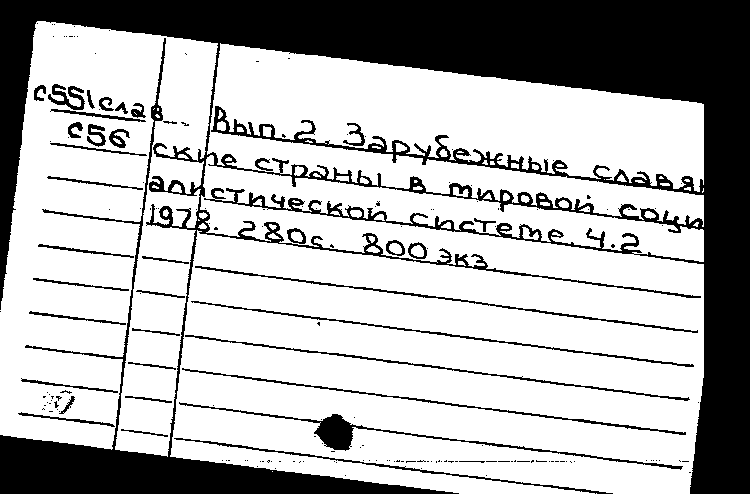 с551слав Вып. 2. Зарубежные славян
с56 ские страны в мировой соци
алистической системе. Ч.2.
1978. 280с. 800 экз.